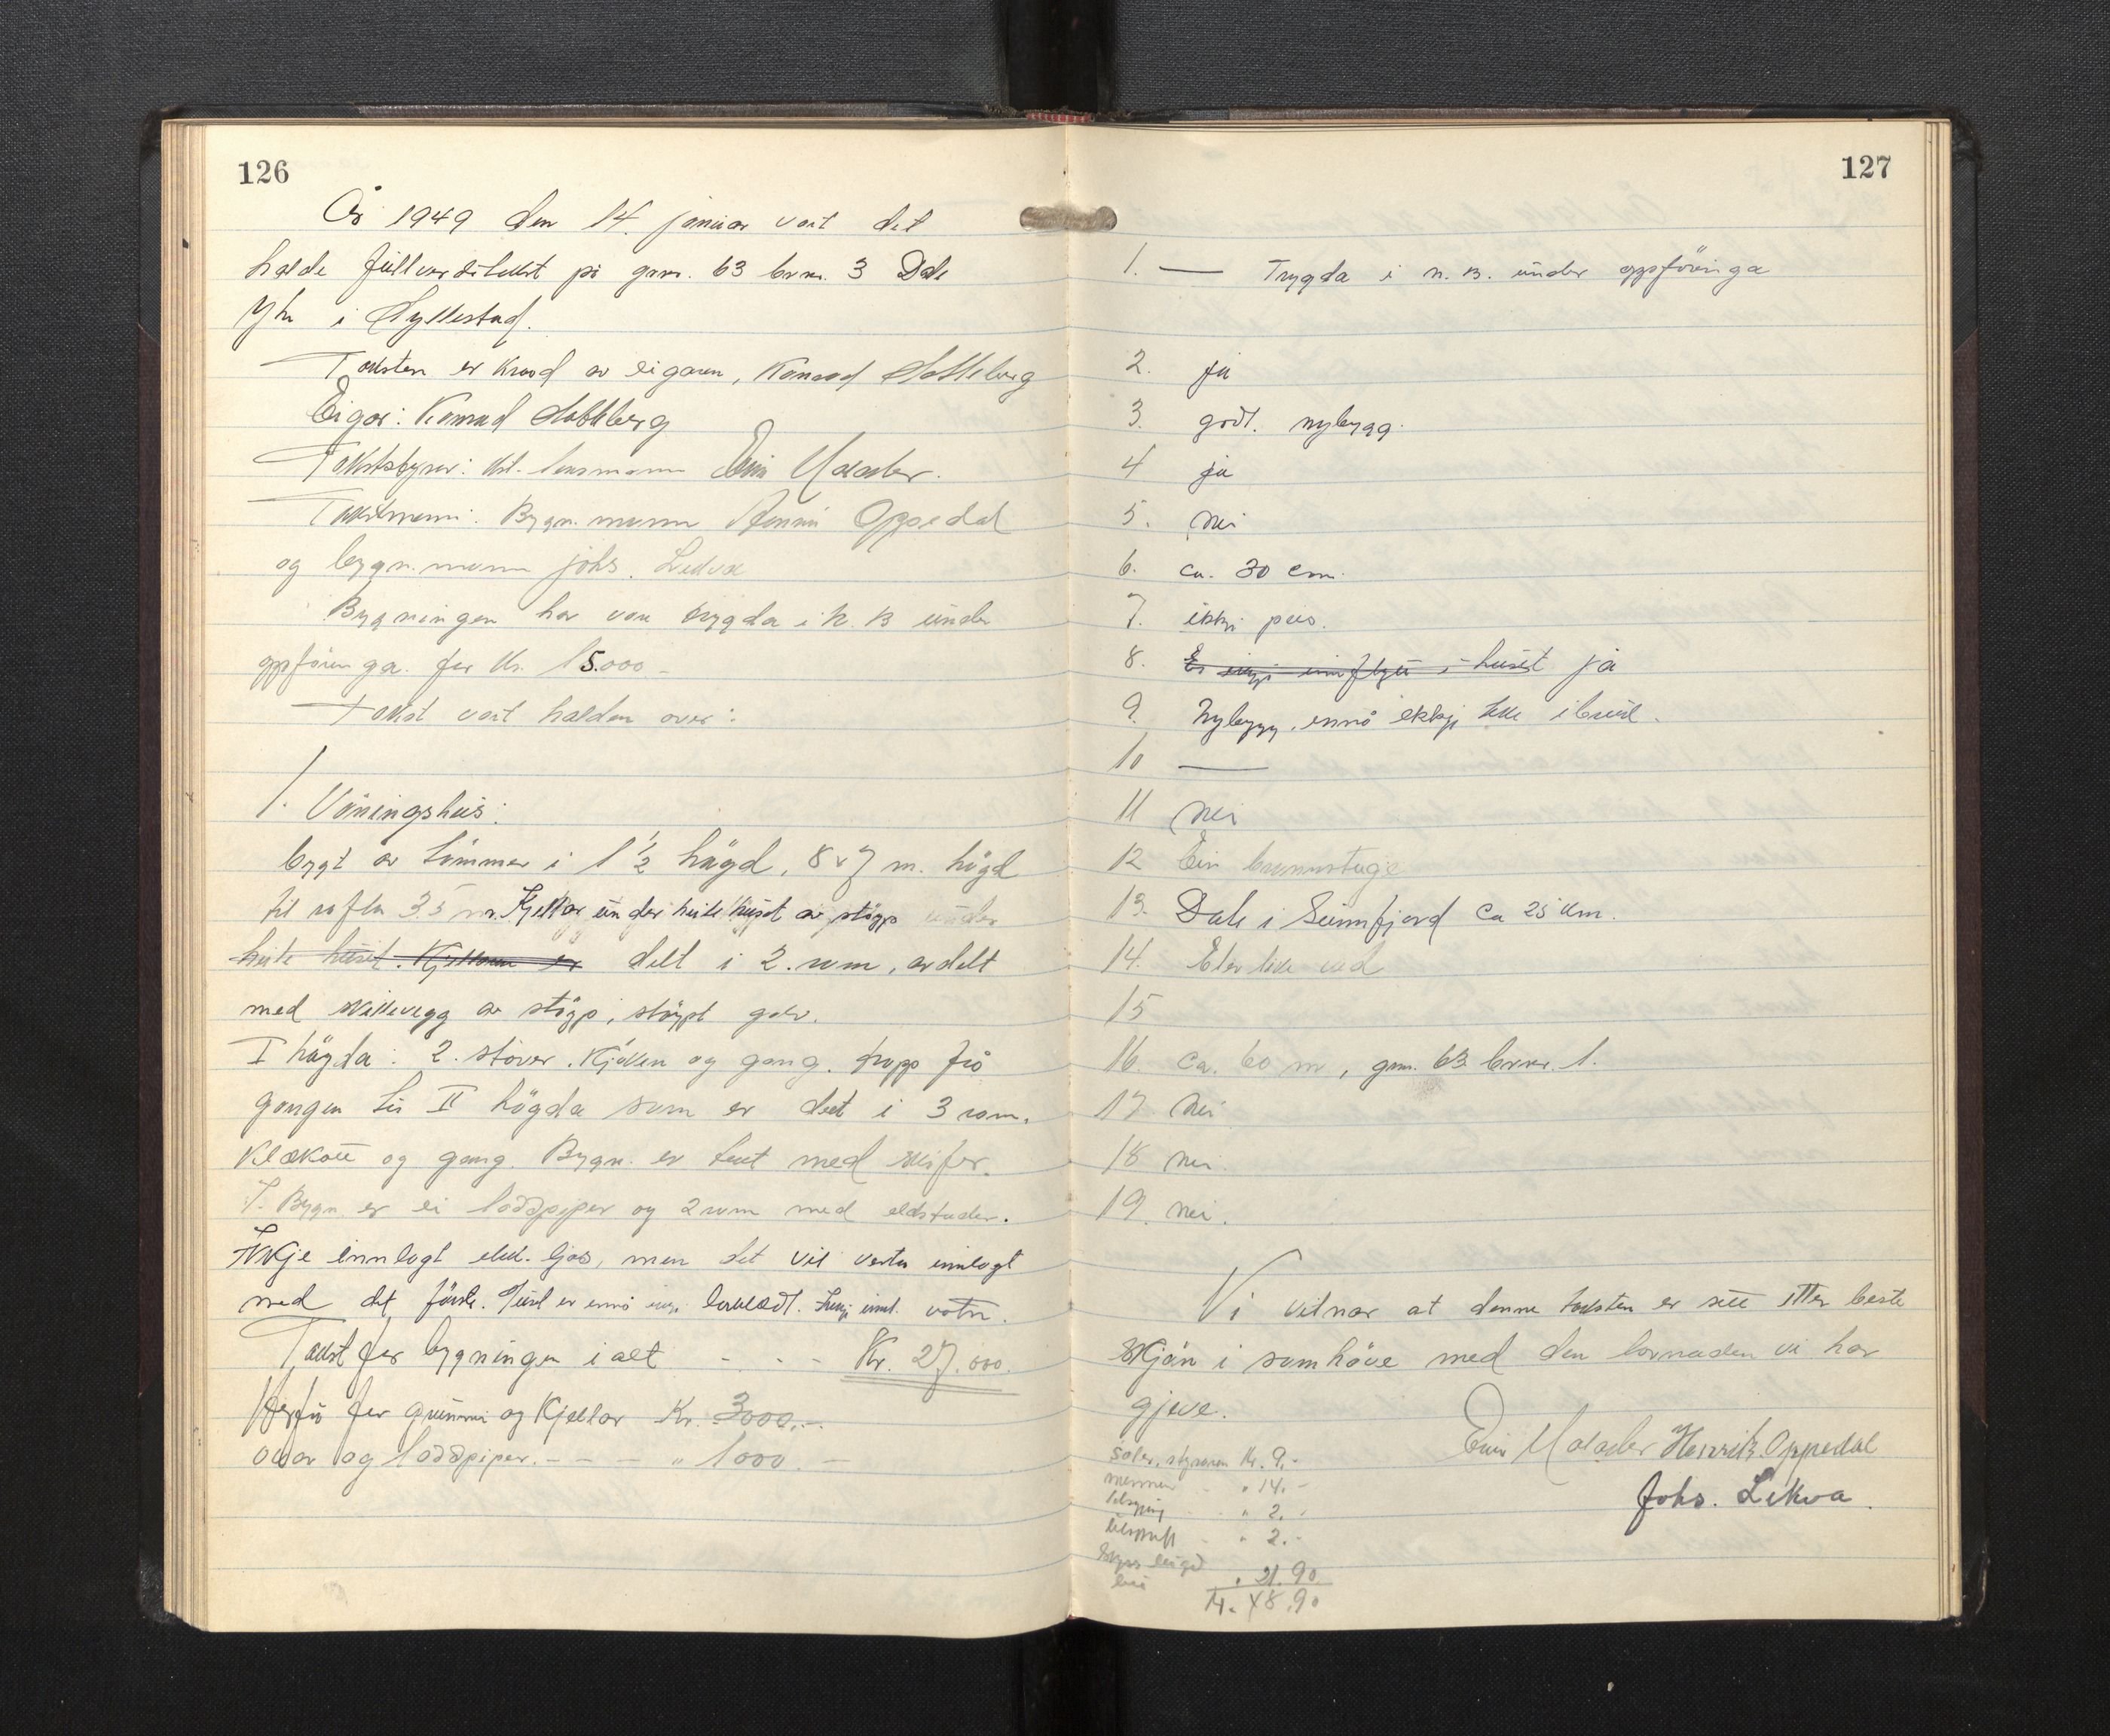 126
År 1949 den 14. januar vart det
halde fullverditakst på gnr. 63 brnr. 3 Dale
Ytre i Hyllestad.
Taksten er kravd av eigaren, Konrad
Eigar: Konrad
Takststyrar: lensmann
Takstmenn: Bygn. mann Henrik Oppedal
og bygn. mann Johs. Lekva
Bygningen har vore trygda i N. B under
oppföringa for kr. 15.000 -
Takst vart halden over:
1. Våningshus:
bygt av tömmer i 1 1/2 högd, 8 x 7 m. högd
til rafta 3.5 m. Kjellar under heile huset av støyp under
heile huset. Kjellaren er delt i 2. rom, avdelt
med skillevegg av støyp, støypt golv.
I högda: 2. stover. Kjöken og gang. trapp frå
gangen til II högda som er delt i 3 rom.
Klækott og gang. Bygn. er tekt med skifer.
I. Bygn. er ei loddpipe og 2 rom med eldstader.
Ikkje innlagt elek. ljos, men det vil verta innlagt
med det fürste. Huset er ennå ikkje bordkledt. Ikkje innl. vatn.
Takst for bygningen i alt - - - Kr. 27.000.
Herfrå for grunnmur og Kjellar Kr. 3000.-
ovnar og loddpiper. - - - " 1000. -
127
1. — Trygda i N. B. under oppföringa
2. ja
3. godt. nybygg.
4 ja
5. nei
6. ca. 30 cm.
7. ikkje puss.
8. Er ikkje innflytt i huset ja
9. Nybygg, ennå ikkje teke i bruk.
10 —
11 nei
12 Ein brannstuge
13. Dale i Sunnfjord ca 25 km.
14. Elektrisk ved
15
16. ca. 60 m, gnr. 63 brnr. 1.
17 Nei
18 nei.
19. nei.
Vi vitnar at denne taksten er sett etter beste
skjön i samhöve med den lovnaden vi har
gjeve.
Henrik Oppedal
Johs. Lekva.
Salær, styraren kr. 9.-
mennene - " 14. -
" 2. -
" 2. -
Skyss
" 21.90
Kr. 48.90